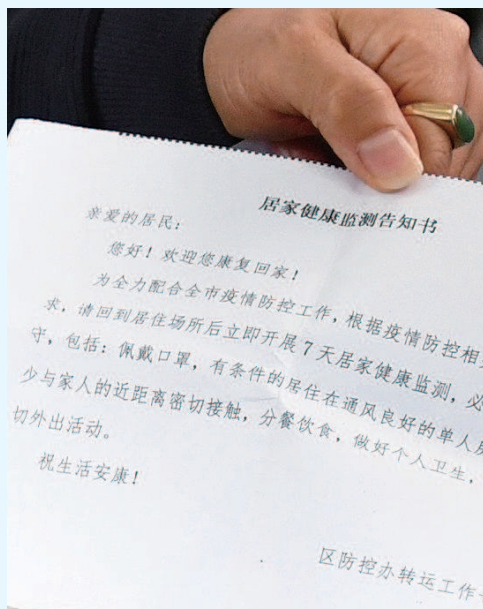 居家健康监测告知书
亲爱的居民：
您好！欢迎您康复回家！
为全力配合全市疫情防控工作，根据疫情防控相
求，请回到居住场所后立即开展7天居家健康监测，必
守，包括：佩戴口罩，有条件的居住在通风良好的单人房
少与家人的近距离密切接触，分餐饮食，做好个人卫生，
切外出活动。
祝生活安康！
区防控办转运工作